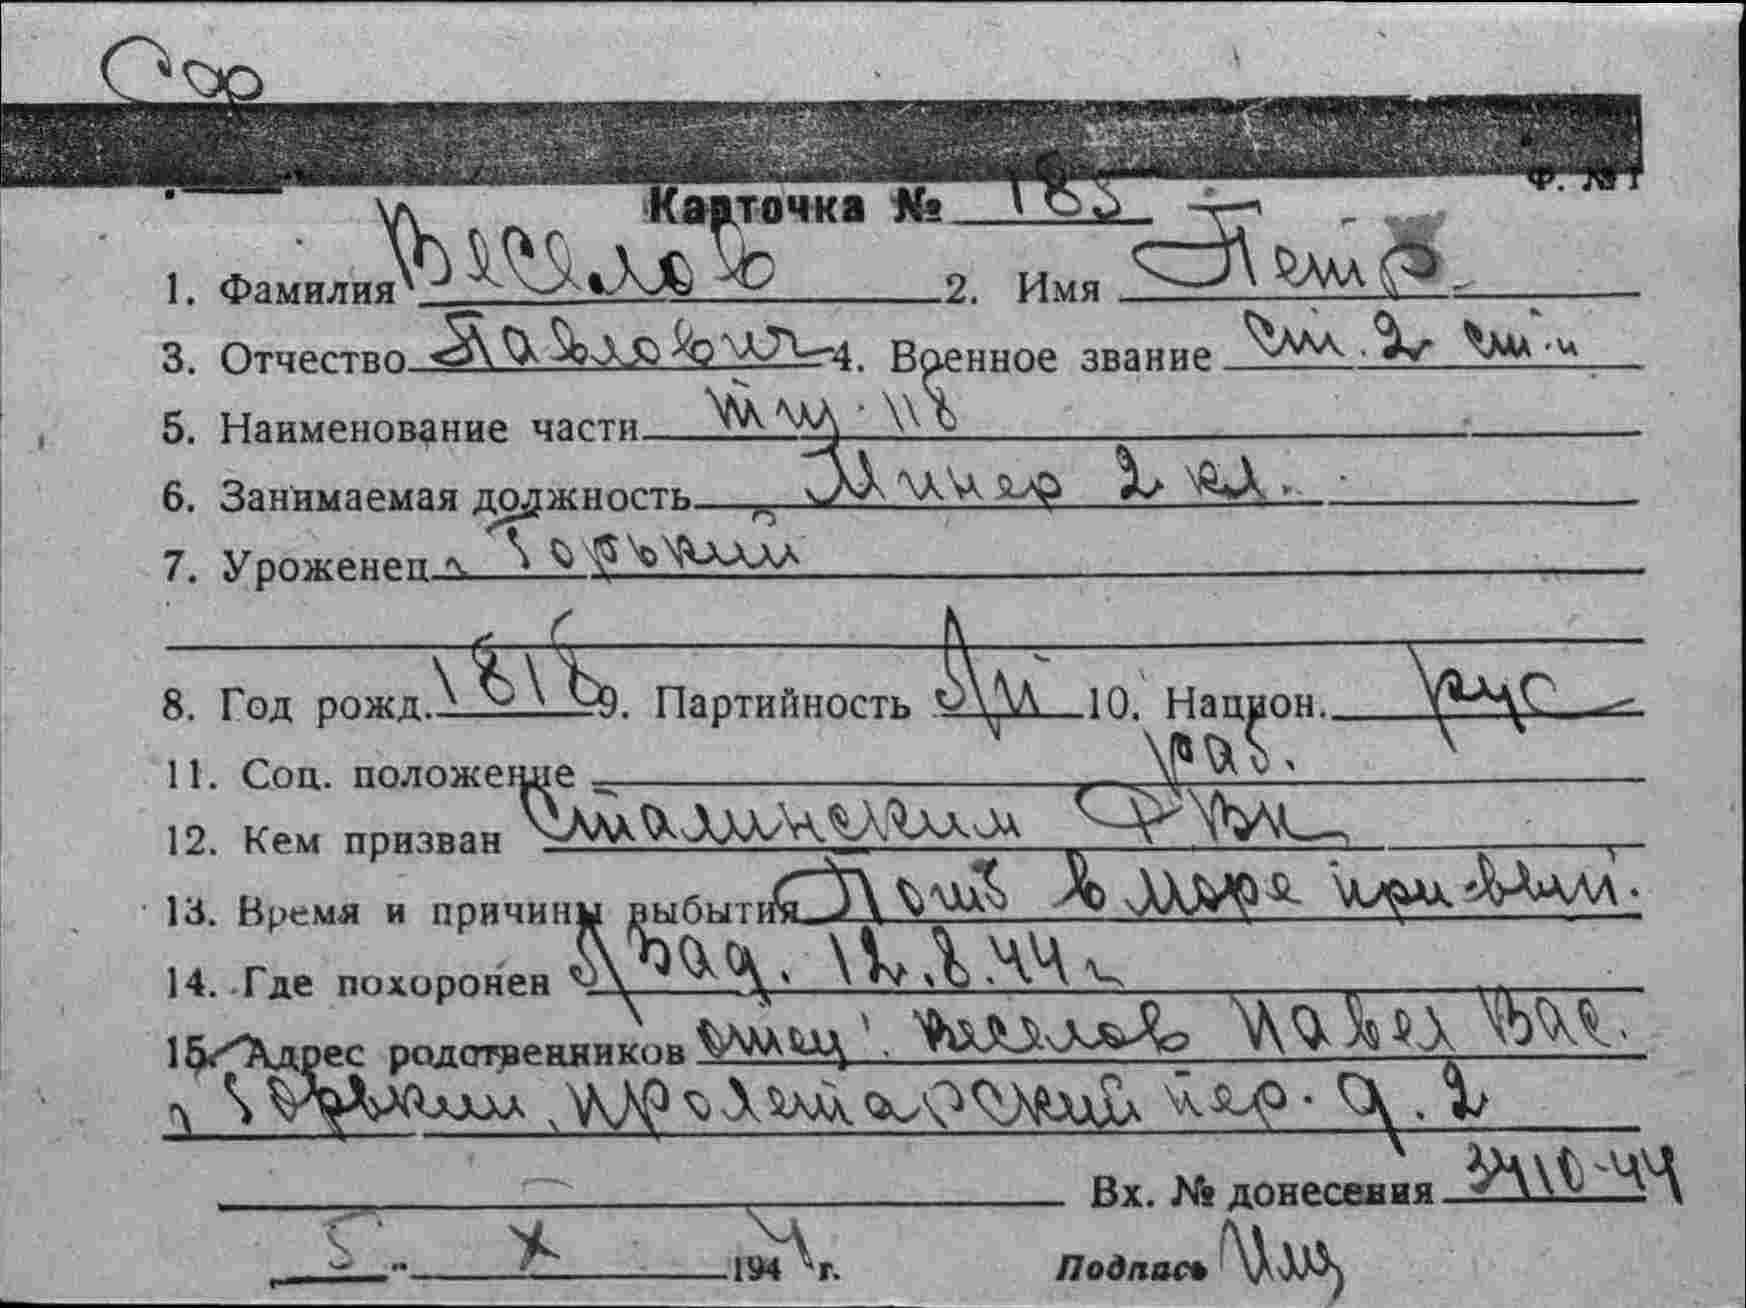 Сар
Ф. № 1
Карточка № 185
1. Фамилия Веселов 2. Имя Петр
3. Отчество Павлович 4. Военное звание ст. 2 ст-и
5. Наименование части тщ. 118
6. Занимаемая должность Минер 2 кл.
7. Уроженец г Горький
8. Год рожд. 1818 9. Партийность б/п 10. Национ. рус
11. Соц. положение раб.
12. Кем призван Сталинским РВК
13. Время и причины выбытия Погиб в море при вып.
14. Где похоронен б/зад. 12.8.44 г
15. Адрес родственников отец: Веселов Павел Вас.
г Горький, Пролетарский пер. д. 2
Вх. № донесения 3410-44
5 " X 1944 г. Подпись